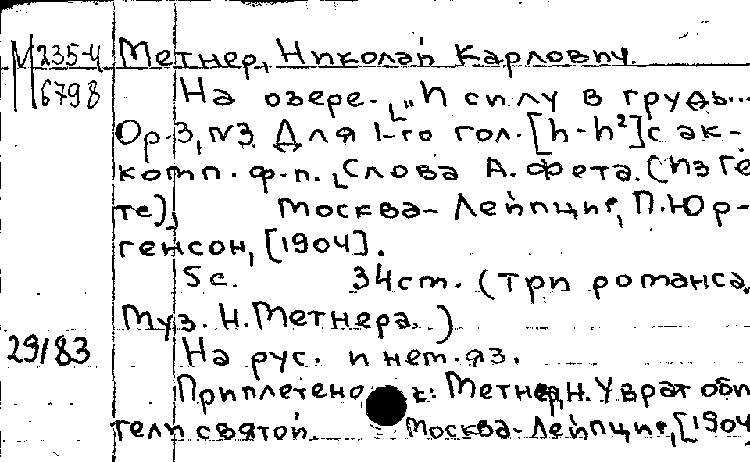 М 235-4 Метнер, Николай Карлович.
6798 На озере. „И силу в грудь...
Ор. 3, №3. Для 1-го гол. [h-h²] с ак-
комп. ф-п. Слова А. Фета. (Из Ге
те), Москва-Лейпциг, П. Юр-
генсон, [1904].
5 с. 34 cm. (Три романса.
Муз. Н. Метнера.)
29/83 На рус. и нем. яз.
Приплетено к: Метнер, Н. У врат оби
тели святой. Москва-Лейпциг, [1904